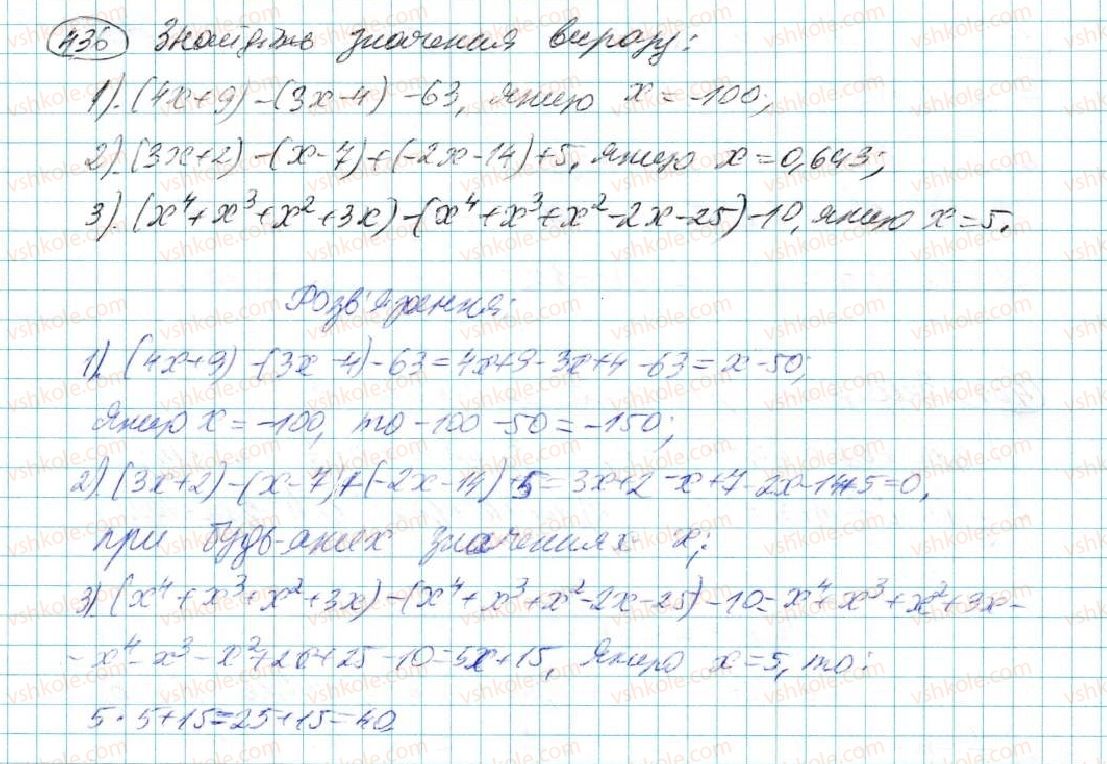 436 Знайдіть значення виразу:
1). (4x+9)-(3x-4)-63, якщо x=-100;
2). (3x+2)-(x-7)+(-2x-14)+5, якщо x=0,643;
3). (x⁴+x³+x²+3x)-(x⁴+x³+x²-2x-25)-10, якщо x=5.
Розв'язання:
1). (4x+9)-(3x-4)-63=4x+9-3x+4-63=x-50;
Якщо x=-100, то -100-50=-150;
2). (3x+2)-(x-7)+(-2x-14)+5=3x+2-x+7-2x-14+5=0,
при будь-яких значеннях x;
3) (x⁴+x³+x²+3x)-(x⁴+x³+x²-2x-25)-10=x⁴+x³+x²+3x-
-x⁴-x³-x²+2x+25-10=5x+15, Якщо x=5, то:
5·5+15=25+15=40.